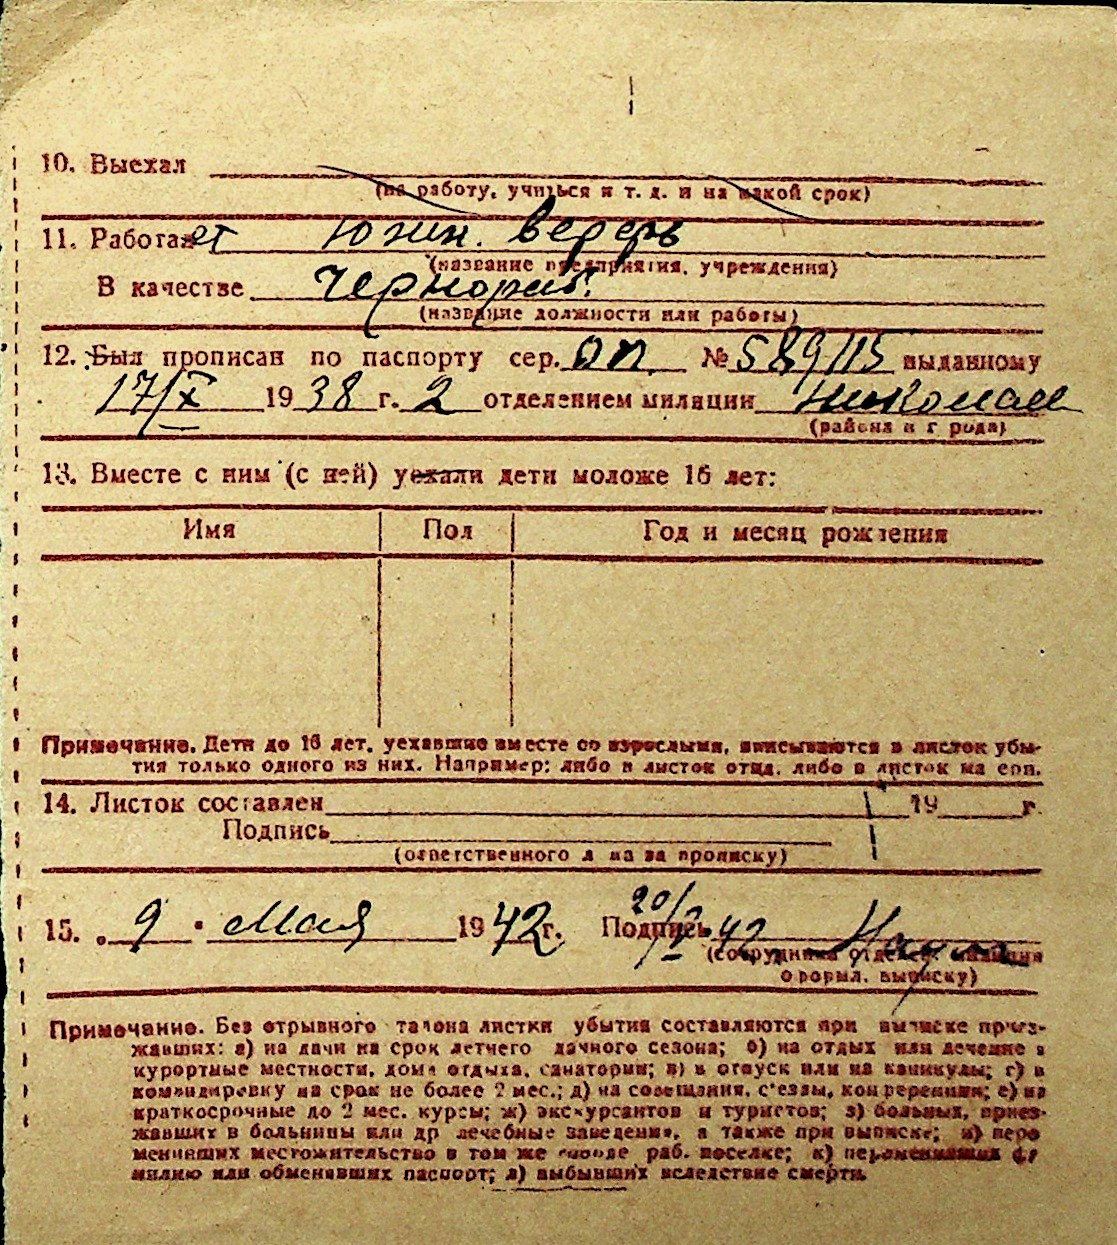 10. Выехал
(на работу, учиться и т. д. и на какой срок)
11. Работает Южн. верфь
(название предприятия, учреждения)
В качестве Чернораб.
(название должности или работы)
12. Был прописан по паспорту сер. ОП. № 589115 выданному
17/X 1938 г. 2 отделением милиции Николаев
(района и города)
13. Вместе с ним (с ней) уехали дети моложе 16 лет:
Имя Пол Год и месяц рождения
Примечание. Дети до 16 лет, уехавшие вместе со взрослыми, вписываются в листок убы-
тия только одного из них. Например: либо в листок отца, либо в листок матери.
14. Листок составлен 19 г.
Подпись
(ответственного лица за прописку)
15. „ 9 " Мая 1942 г. Подпись 20/V 42
(сотрудника отделен. милиции
оформл. выписку)
Примечание. Без отрывного талона листки убытия составляются при выписке приез-
жавших: а) на дачи на срок летнего дачного сезона; б) на отдых или лечение в
курортные местности, дома отдыха, санатории; в) в отпуск или на каникулы; г) в
командировку на срок не более 2 мес.; д) на совещания, с'езды, конференции; е) на
краткосрочные до 2 мес. курсы; ж) экскурсантов и туристов; з) больных, приез-
жавших в больницы или др лечебные заведения, а также при выписке; и) пере
менивших местожительство в том же городе раб. поселке; к) переменивших фа
милию или обменявших паспорт; л) выбывших вследствие смерти.